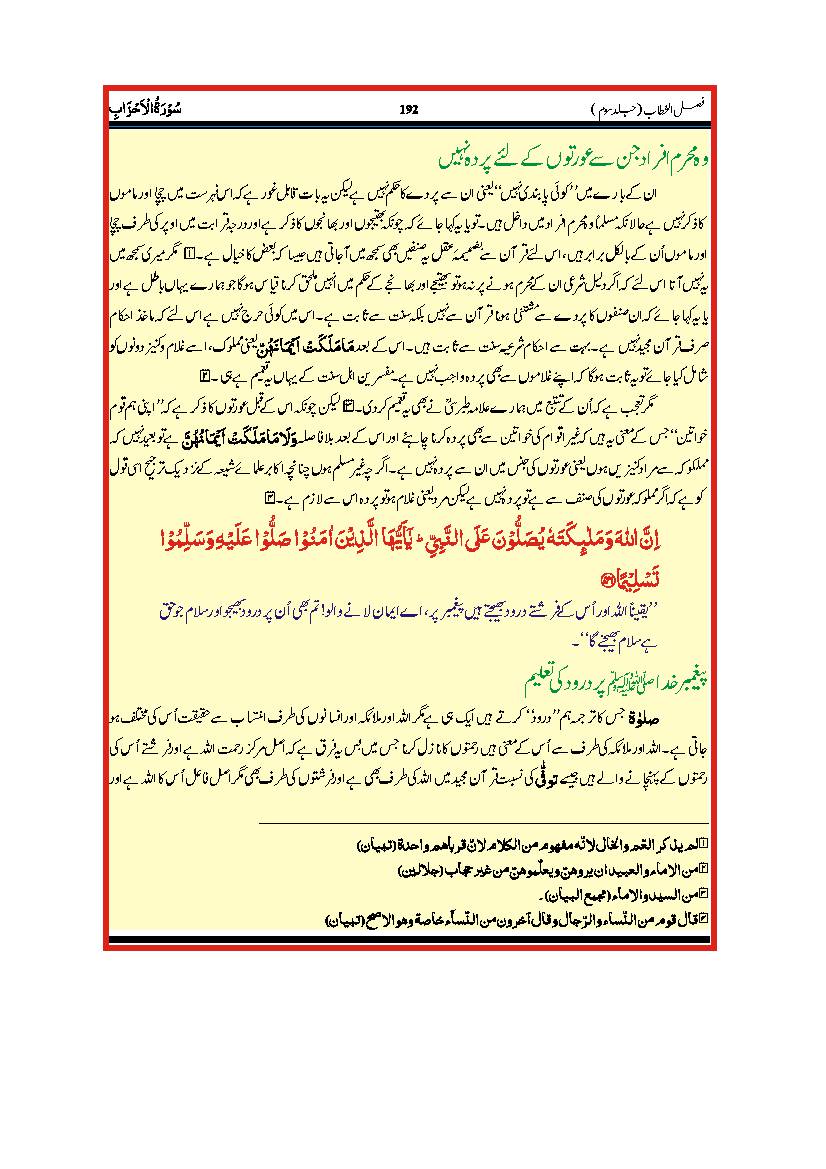 فصل الخطاب (جلد سوم) 192 سُوْرَةُ الْاَحْزَابِ
وہ محرم افراد جن سے عورتوں کے لئے پردہ نہیں
ان کے بارے میں ’’کوئی پابندی نہیں‘‘ یعنی ان سے پردے کا حکم نہیں ہے لیکن یہ بات قابل غور ہے کہ اس فہرست میں چچا اور ماموں
کا ذکر نہیں ہے حالانکہ مسلما وہ محرم افراد میں داخل ہیں۔ تو یا یہ کہا جائے کہ چونکہ بھتیجوں اور بھانجوں کا ذکر ہے اور درجۂ قرابت میں اوپر کی طرف چچا
اور ماموں اُن کے بالکل برابر ہیں، اس لئے قرآن سے بضمیمۂ عقل یہ صنفیں بھی سمجھ میں آجاتی ہیں جیسا کہ بعض کا خیال ہے۔ ۱ مگر میری سمجھ میں
یہ نہیں آتا اس لئے کہ اگر دلیل شرعی ان کے محرم ہونے پر نہ ہو تو بھتیجے اور بھانجے کے حکم میں انہیں ملحق کرنا قیاس ہوگا جو ہمارے یہاں باطل ہے اور
یا یہ کہا جائے کہ ان صنفوں کا پردے سے مستثنیٰ ہونا قرآن سے نہیں بلکہ سنت سے ثابت ہے۔ اس میں کوئی حرج نہیں ہے اس لئے کہ ماخذ احکام
صرف قرآن مجید نہیں ہے۔ بہت سے احکام شرعیہ سنت سے ثابت ہیں۔ اس کے بعد مَا مَلَكَتْ اَيْمَانُهُنَّ یعنی مملوک، اسے غلام و کنیز دونوں کو
شامل کیا جائے تو یہ ثابت ہوگا کہ اپنے غلاموں سے بھی پردہ واجب نہیں ہے۔ مفسرین اہل سنت کے یہاں یہ تعمیم ہے ہی۔ ۲
مگر تعجب ہے کہ اُن کے تتبع میں ہمارے علامہ طبرسیؒ نے بھی یہ تعمیم کر دی۔ ۳ لیکن چونکہ اس کے قبل عورتوں کا ذکر ہے کہ ’’اپنی ہم قوم
خواتین‘‘ جس کے معنی یہ ہیں کہ غیر اقوام کی خواتین سے بھی پردہ کرنا چاہئے اور اس کے بعد بلا فاصلہ وَلَا مَا مَلَكَتْ اَيْمَانُهُنَّ ہے تو بعید نہیں کہ
مملوکہ سے مراد کنیزیں ہوں یعنی عورتوں کی جنس میں ان سے پردہ نہیں ہے۔ اگرچہ غیر مسلم ہوں چنانچہ اکابر علمائے شیعہ کے نزدیک ترجیح اسی قول
کو ہے کہ اگر مملوکہ عورتوں کی صنف سے ہے تو پردہ نہیں ہے لیکن مرد یعنی غلام ہو تو پردہ اس سے لازم ہے۔ ۴
اِنَّ اللّٰهَ وَمَلٰٓئِكَتَهٗ يُصَلُّوْنَ عَلَى النَّبِيِّ ؕ يٰٓاَيُّهَا الَّذِيْنَ اٰمَنُوْا صَلُّوْا عَلَيْهِ وَسَلِّمُوْا
تَسْلِيْمًا ۝۵۶
’’یقیناً اللہ اور اُس کے فرشتے درود بھیجتے ہیں پیغمبر پر، اے ایمان لانے والو! تم بھی اُن پر درود بھیجو اور سلام جو حق
ہے سلام بھیجنے کا‘‘۔
پیغمبر خدا ﷺ پر درود کی تعلیم
صلوٰۃ جس کا ترجمہ ہم ’’درود‘‘ کرتے ہیں ایک ہی ہے مگر اللہ اور ملائکہ اور انسانوں کی طرف انتساب سے حقیقت اُس کی مختلف ہو
جاتی ہے۔ اللہ اور ملائکہ کی طرف سے اُس کے معنی ہیں رحمتوں کا نازل کرنا جس میں بس یہ فرق ہے کہ اصل مرکز رحمت اللہ ہے اور فرشتے اُس کی
رحمتوں کے پہنچانے والے ہیں جیسے توفّی کی نسبت قرآن مجید میں اللہ کی طرف بھی ہے اور فرشتوں کی طرف بھی مگر اصل فاعل اُس کا اللہ ہے اور
۱ لم یذکر العّم والخال لانّه مفهوم من الکلام لانّ قرباهم واحدة (تبیان)
۲ من الاماء والعبید ان یروهنّ ویعلّموهنّ من غیر حجاب (جلالین)
۳ من السید والاماء (مجمع البیان)۔
۴ قال قوم من النّساء والرّجال وقال آخرون من النّساء خاصة وهو الاصح (تبیان)